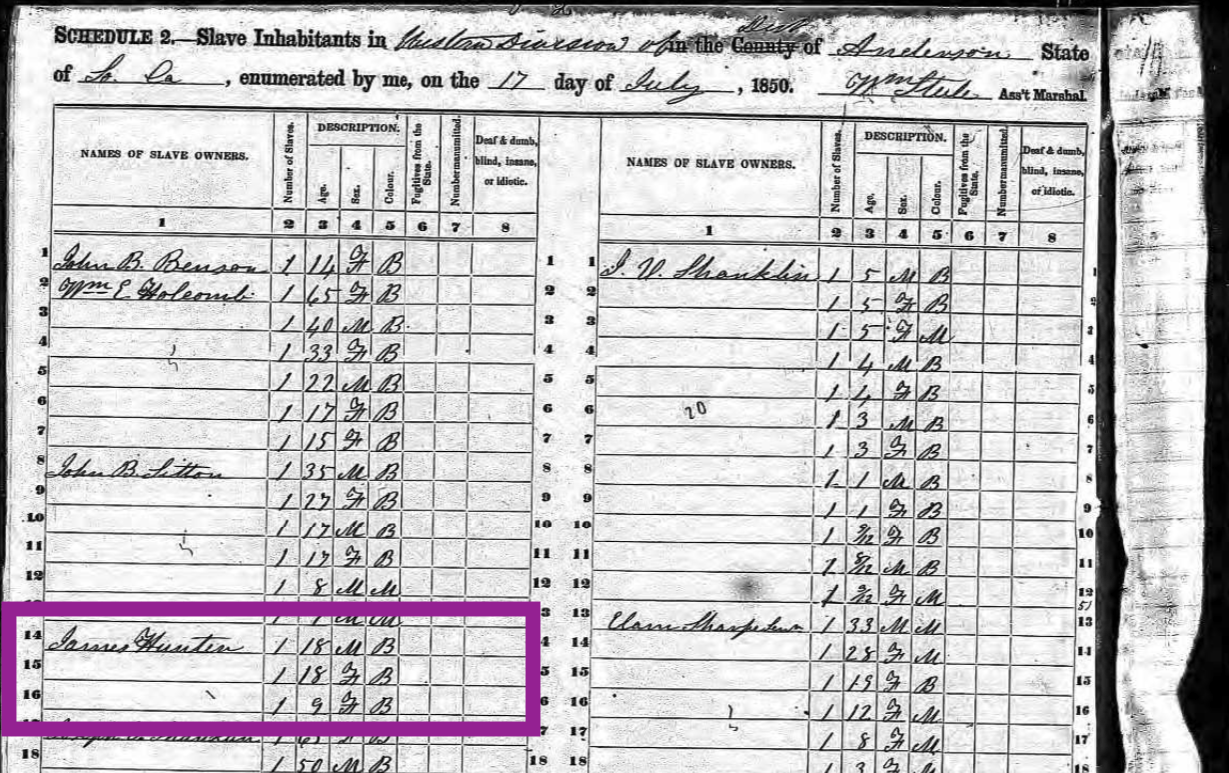 SCHEDULE 2.—Slave Inhabitants in Western Division of in the County Dist of Anderson State
of So. Ca, enumerated by me, on the 17 day of July, 1850. Wm Steele Ass't Marshal.
NAMES OF SLAVE OWNERS. Number of Slaves. DESCRIPTION. Age. Sex. Colour. Fugitives from the State. Number manumitted. Deaf & dumb, blind, insane, or idiotic. NAMES OF SLAVE OWNERS. Number of Slaves. DESCRIPTION. Age. Sex. Colour. Fugitives from the State. Number manumitted. Deaf & dumb, blind, insane, or idiotic.
1 2 3 4 5 6 7 8 1 2 3 4 5 6 7 8
1 John B. Benson 1 14 F B 1 1 J. V. Shanklin 1 5 M B 1
2 Wm E Holcomb 1 65 F B 2 2 1 5 F B 2
3 1 40 M B 3 3 1 5 F M 3
4 1 33 F B 4 4 1 4 M B 4
5 1 22 M B 5 5 1 4 F B 5
6 1 17 F B 6 6 20 1 3 M B 6
7 1 15 F B 7 7 1 3 F B 7
8 John B Sitton 1 35 M B 8 8 1 1 M B 8
9 1 27 F B 9 9 1 1 F B 9
10 1 17 M B 10 10 1 F B 10
11 1 17 F B 11 11 1 8/12 M B 11
12 1 8 M M 12 12 1 F M 12
1 1 M M 3 13 Elam Sharpe 1 33 M M 13
14 James Hunter 1 18 M B 4 14 1 28 F M 14
15 1 18 F B 5 15 1 19 F B 15
16 1 9 F B 6 16 1 12 F M 16
1 7 17 1 8 F M 17
18 1 50 M B 18 18 1 3 18